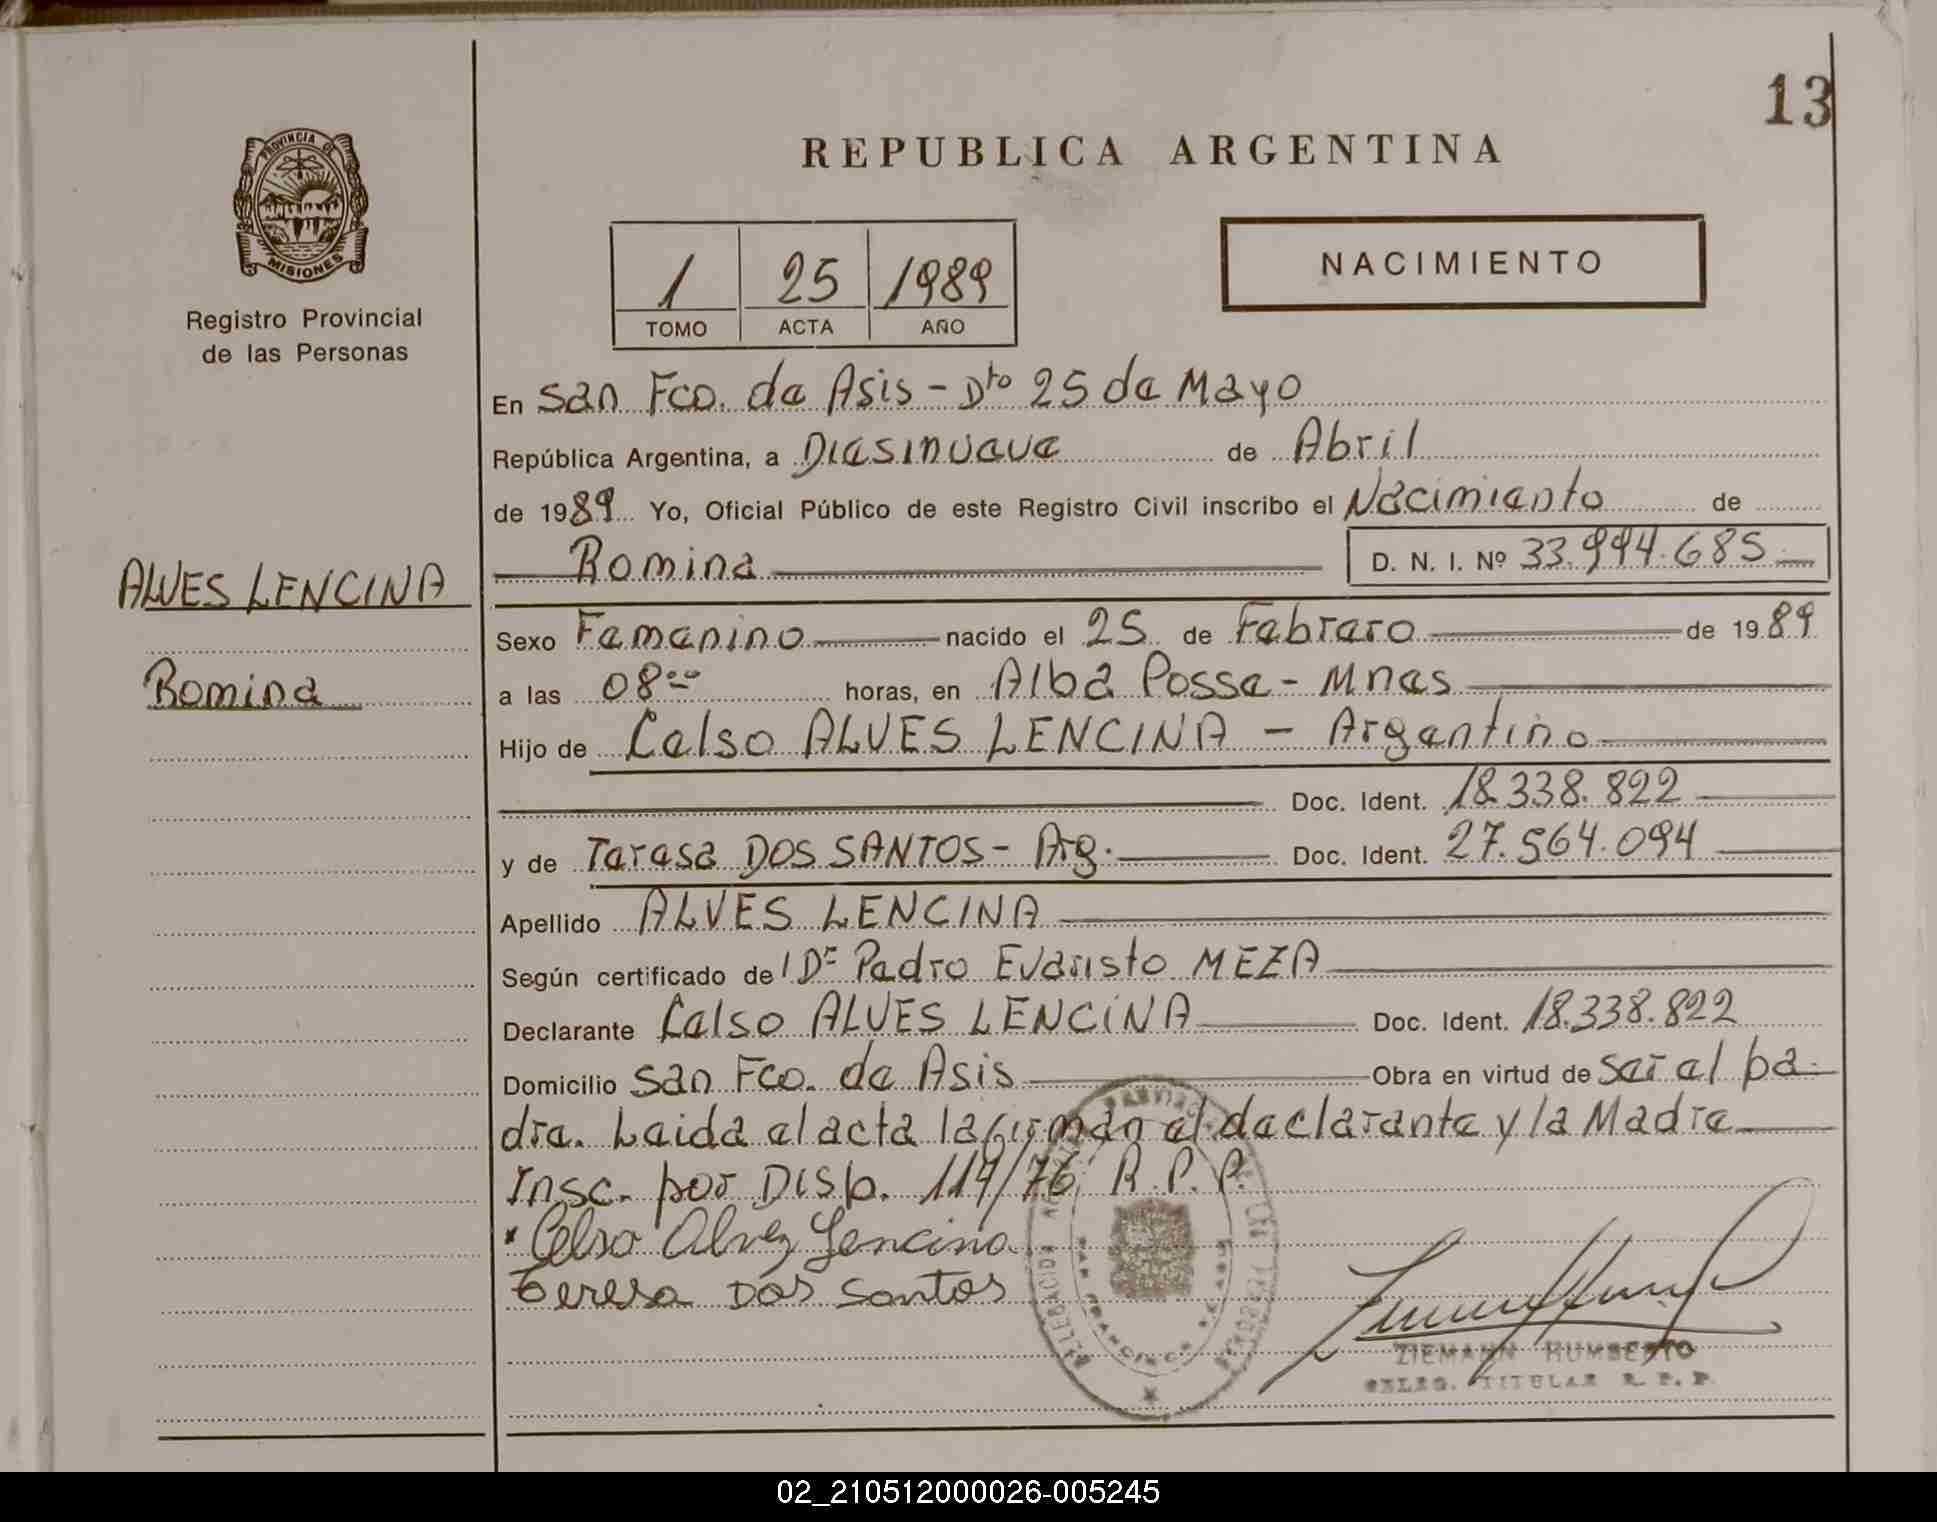 13
REPUBLICA ARGENTINA
PROVINCIA DE
MISIONES
Registro Provincial
de las Personas
1 25 1989
TOMO ACTA AÑO
NACIMIENTO
En San Fco. de Asis - Dto 25 de Mayo
República Argentina, a Diesinueve de Abril
de 1989 Yo, Oficial Público de este Registro Civil inscribo el Nacimiento de
Romina D. N. I. Nº 33.994.685
ALVES LENCINA
Romina
Sexo Femenino nacido el 25 de Febrero de 1989
a las 08:00 horas, en Alba Posse - Mnes
Hijo de Celso ALVES LENCINA - Argentino
Doc. Ident. 18.338.822
y de Teresa DOS SANTOS - Arg. Doc. Ident. 27.564.094
Apellido ALVES LENCINA
Según certificado del Dr Pedro Evaristo MEZA
Declarante Celso ALVES LENCINA Doc. Ident. 18.338.822
Domicilio San Fco. de Asis Obra en virtud de ser el pa-
dre. Leida el acta la firman el declarante y la Madre
Insc. por Disp. 114/76 R. P. P.
Celso Alvez Lencina
Teresa Dos Santos
SAN FRANCISCO DE ASIS
ZIEMANN HUMBERTO
DELEG. TITULAR R. P. P.
02_210512000026-005245